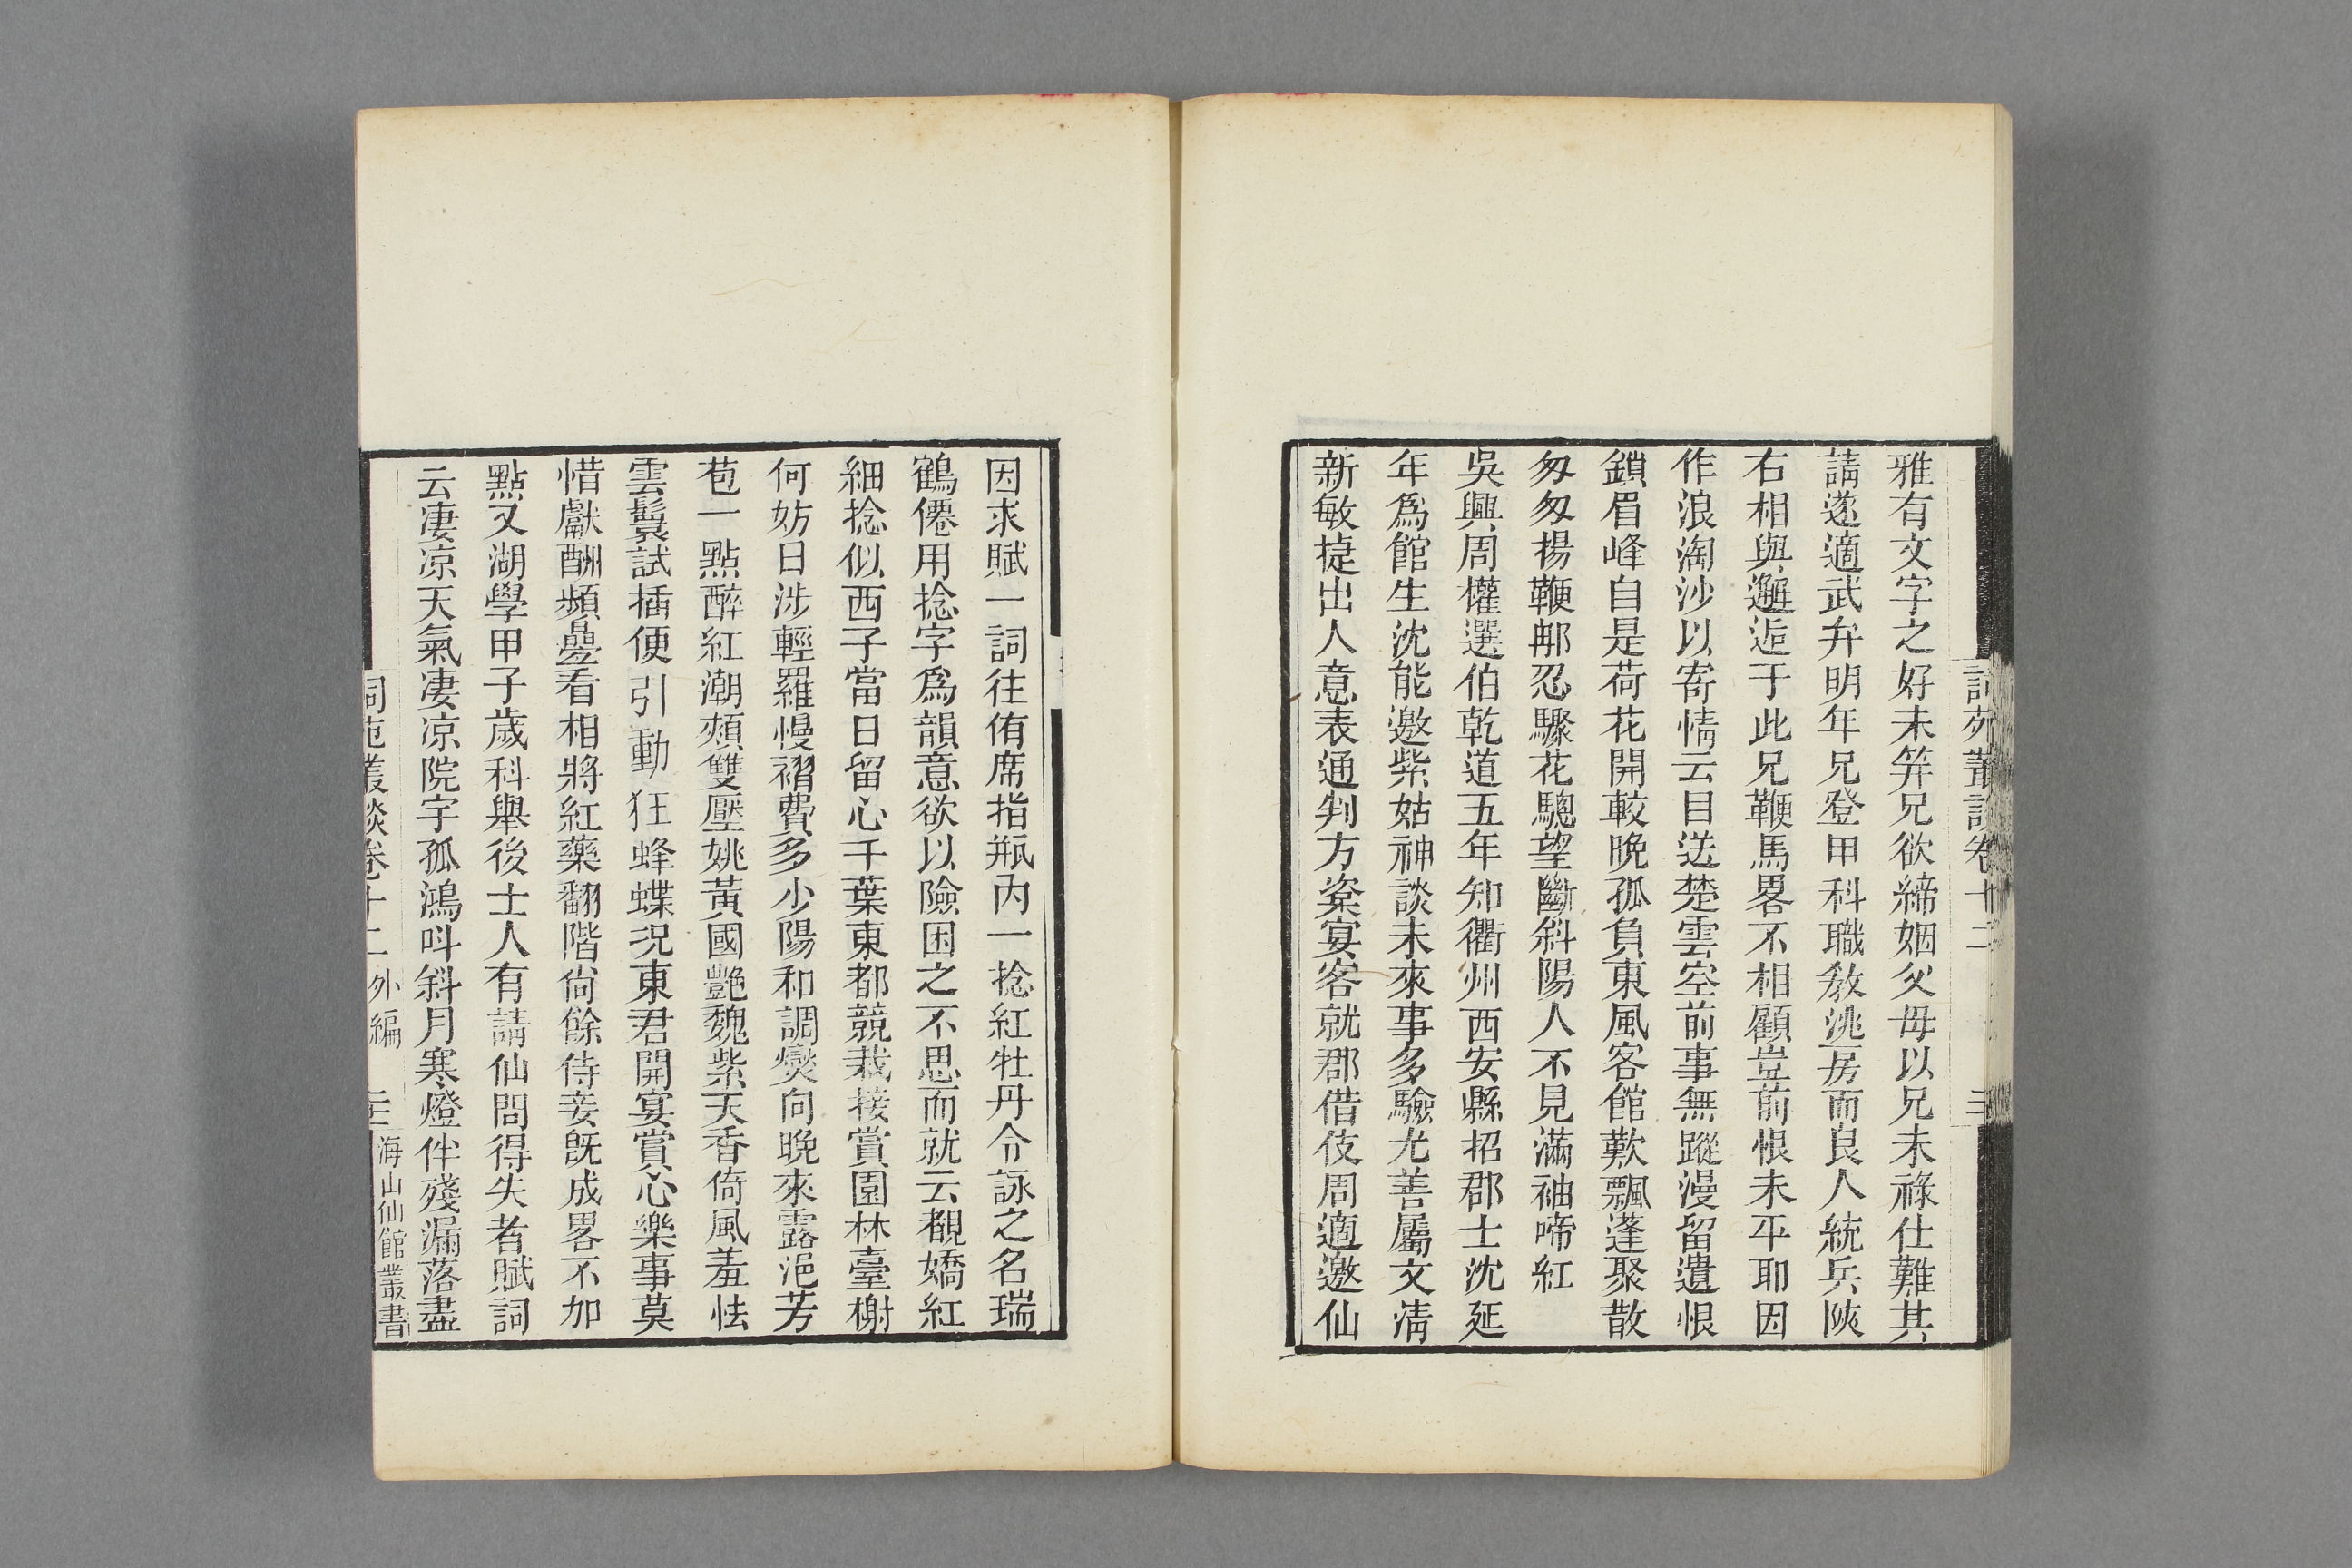 雅有文字之好未筓兄欲締姻父母以兄未祿仕難其
請遂適武弁明年兄登甲科職敎洮房而良人統兵陝
右相與邂逅于此兄鞭馬畧不相顧豈前恨未平耶因
作浪淘沙以寄情云目送楚雲空前事無蹤漫留遺恨
鎖眉峰自是荷花開較晚孤負東風客館歎飄蓬聚散
匆匆揚鞭那忍驟花驄望斷斜陽人不見滿袖啼紅
吳興周權選伯乾道五年知衢州西安縣招郡士沈延
年爲館生沈能邀紫姑神談未來事多驗尤善屬文淸
新敏捷出人意表通判方粢宴客就郡借伎周適邀仙
詞苑叢談卷十二
因求賦一詞往侑席指瓶內一捻紅牡丹令詠之名瑞
鶴僊用捻字爲韻意欲以險困之不思而就云覩嬌紅
細捻似西子當日留心千葉東都競栽接賞園林臺榭
何妨日涉輕羅慢褶費多少陽和調爕向晚來露浥芳
苞一點醉紅潮頰雙壓姚黃國艷魏紫天香倚風羞怯
雲鬟試插便引動狂蜂蝶況東君開宴賞心樂事莫
惜獻酬頻疊看相將紅藥翻階尙餘侍妾旣成畧不加
點又湖學甲子歲科舉後士人有請仙問得失者賦詞
云凄凉天氣凄凉院宇孤鴻呌斜月寒燈伴殘漏落盡
詞苑叢談卷十二 外編 海山仙館叢書